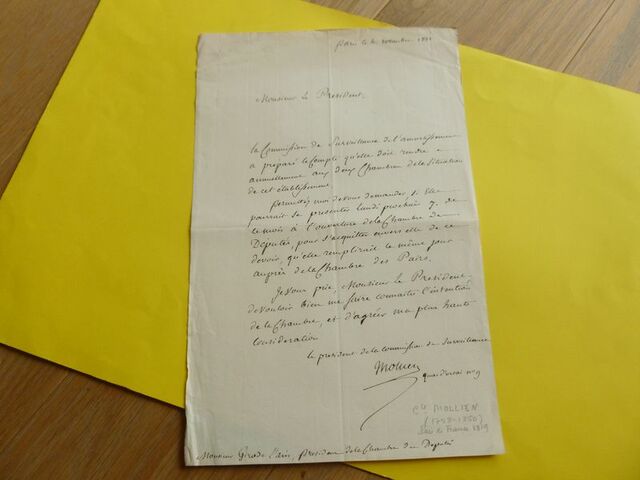 Paris le novembre 1831
Monsieur le Président,
la Commission de Surveillance de l'amortissement
a préparé le Compte qu'elle doit rendre
annuellement aux deux Chambres de la Situation
de cet établissement
Permettez moi de vous demander si Elle
pourrait se présenter lundi prochain 7. de
le mois à l'ouverture de la Chambre des
Députés, pour s'acquitter envers elle de ce
devoir, qu'elle remplirait le même jour
auprès de la Chambre des Pairs.
Je vous prie, Monsieur le Président
de vouloir bien me faire connaitre l'intention
de la Chambre, et d'agréer ma plus haute
Considération
le président de la Commission de Surveillance
Mollien
quai d'orsai n° 9
Cte MOLLIEN
(1758-1850)
Pair de France 1819
Monsieur Girod de l'ain, président de la Chambre des Députés